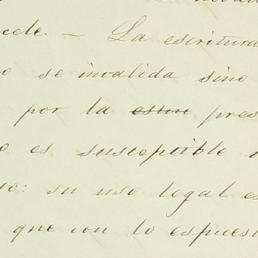 cede. — La escritura
o se invalida sino
por la estru pres
o es susceptible
o: su uso legal es
que con lo espues